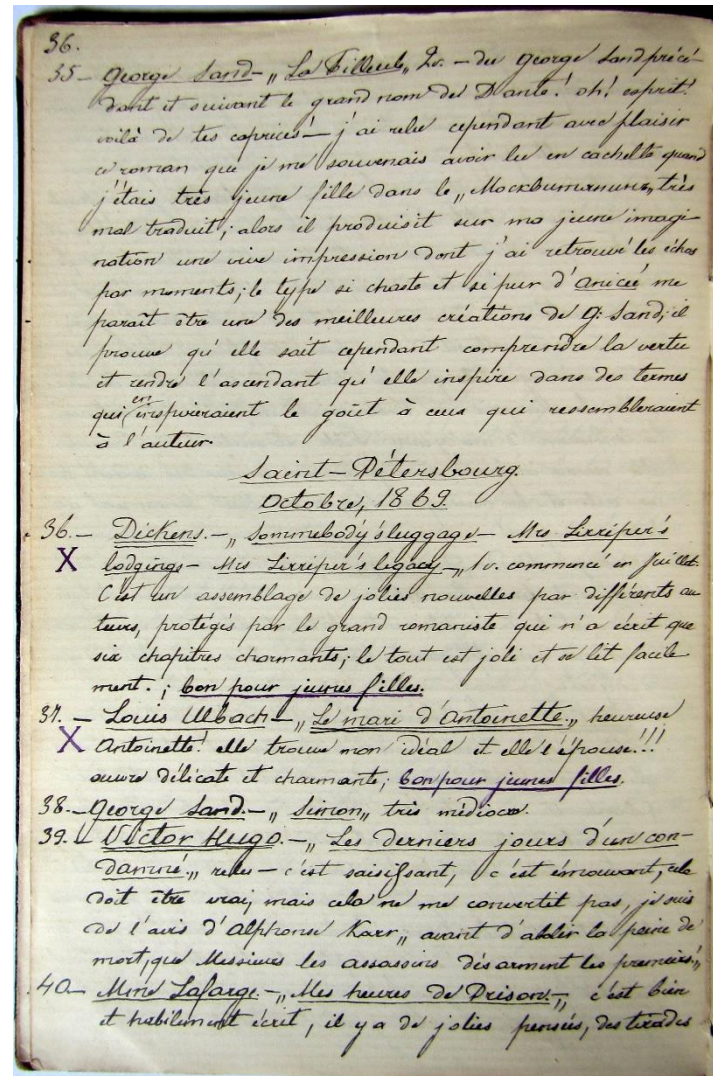 36.
35 – George Sand – „La Filleule„ 2v. – du George Sand précé-
dant et suivant le grand nom de Dante! oh! esprit!
voilà de tes caprices! – j'ai relu cependant avec plaisir
ce roman que je me souvenais avoir lu en cachette quand
j'étais très jeune fille dans le „Москвитянинъ„ très
mal traduit; alors il produisit sur ma jeune imagi
nation une vive impression dont j'ai retrouvé les échos
par moments; le type si chaste et si pur d'Anicée me
paraît être une des meilleures créations de G. Sand; il
prouve qu'elle sait cependant comprendre la vertu
et rendre l'ascendant qu'elle inspire dans des termes
qui en inspireraient le goût à ceux qui ressembleraient
à l'auteur.
Saint – Pétersbourg.
Octobre, 1869.
36. – Dickens. – „Sommebody's luggage – Mrs Lirriper's
X lodgings – Mrs Lirriper's legacy –„ 1v. commencé en Juillet.
C'est un assemblage de jolies nouvelles par différents au
teurs, protégés par le grand romaniste qui n'a écrit que
six chapitres charmants; le tout est joli et se lit facile
ment. ; bon pour jeunes filles.
37. – Louis Ulbach – „Le mari d'Antoinette„ heureuse
X Antoinette! elle trouve mon idéal et elle l'épouse!!!
œuvre délicate et charmante; bon pour jeunes filles.
38. – George Sand. – „Simon„ très médiocre.
39. – Victor Hugo. – „Les derniers jours d'un con-
damné„ relu – c'est saisissant, c'est émouvant, cela
doit être vrai, mais cela ne me convertit pas, je suis
de l'avis d'Alphonse Karr „avant d'abolir la peine de
mort, que Messieurs les assassins désarment les premiers„
40 – Mme Lafarge. – „Mes heures de Prison –„ c'est bien
et habilement écrit, il y a de jolies pensées, des tirades